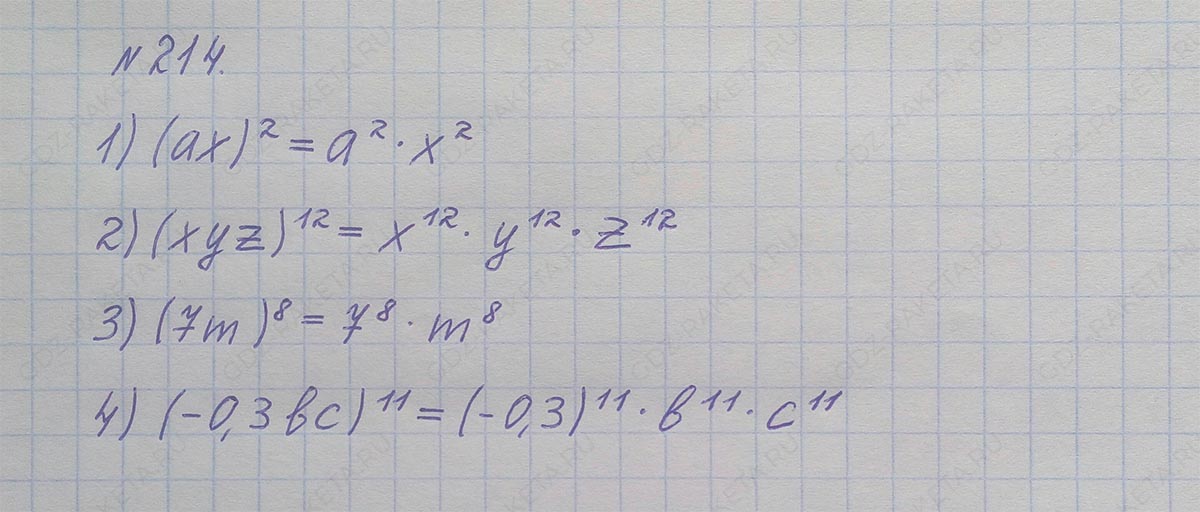 N 214.
1) (ax)² = a² · x²
2) (xyz)¹² = x¹² · y¹² · z¹²
3) (7m)⁸ = 7⁸ · m⁸
4) (-0,3 bc)¹¹ = (-0,3)¹¹ · b¹¹ · c¹¹
GDZ-RAKETA.RU